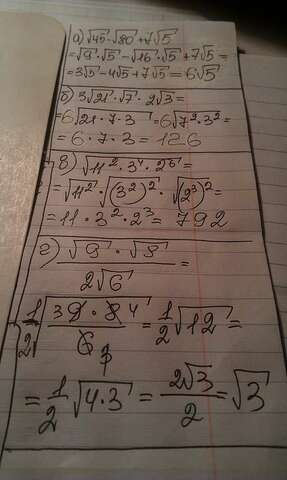 а) √45 - √80 + 7√5
= √9 · √5 - √16 · √5 + 7√5 =
= 3√5 - 4√5 + 7√5 = 6√5
б) 3√21 · √7 · 2√3 =
= 6√21 · 7 · 3 = 6√7² · 3² =
= 6 · 7 · 3 = 126
в) √11² · 3⁴ · 2⁶ =
= √11² · √(3²)² · √(2³)² =
= 11 · 3² · 2³ = 792
г) √9 · √8 / 2√6 =
1/2 √39 · 8 4 / 6 = 1/2 √12 =
= 1/2 √4 · 3 = 2√3 / 2 = √3